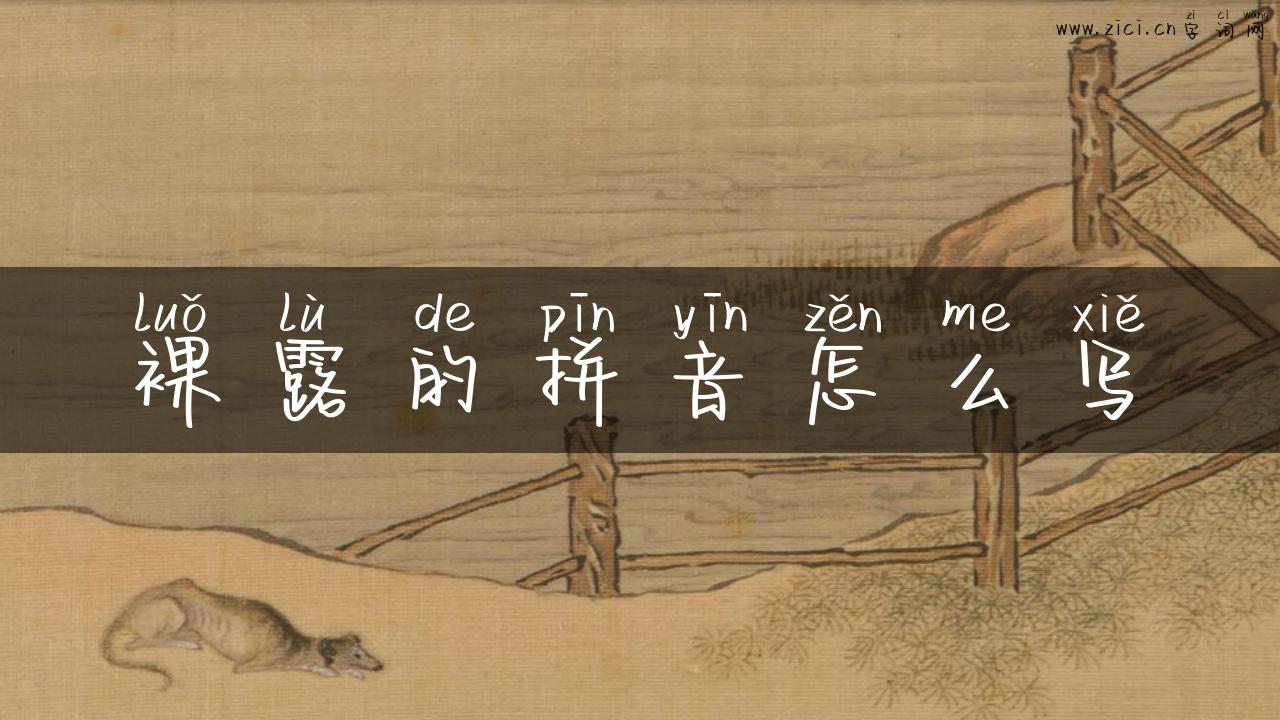 zi ci wang
www.zici.cn 字词网
luǒ lù de pīn yīn zěn me xiě
裸露的拼音怎么写